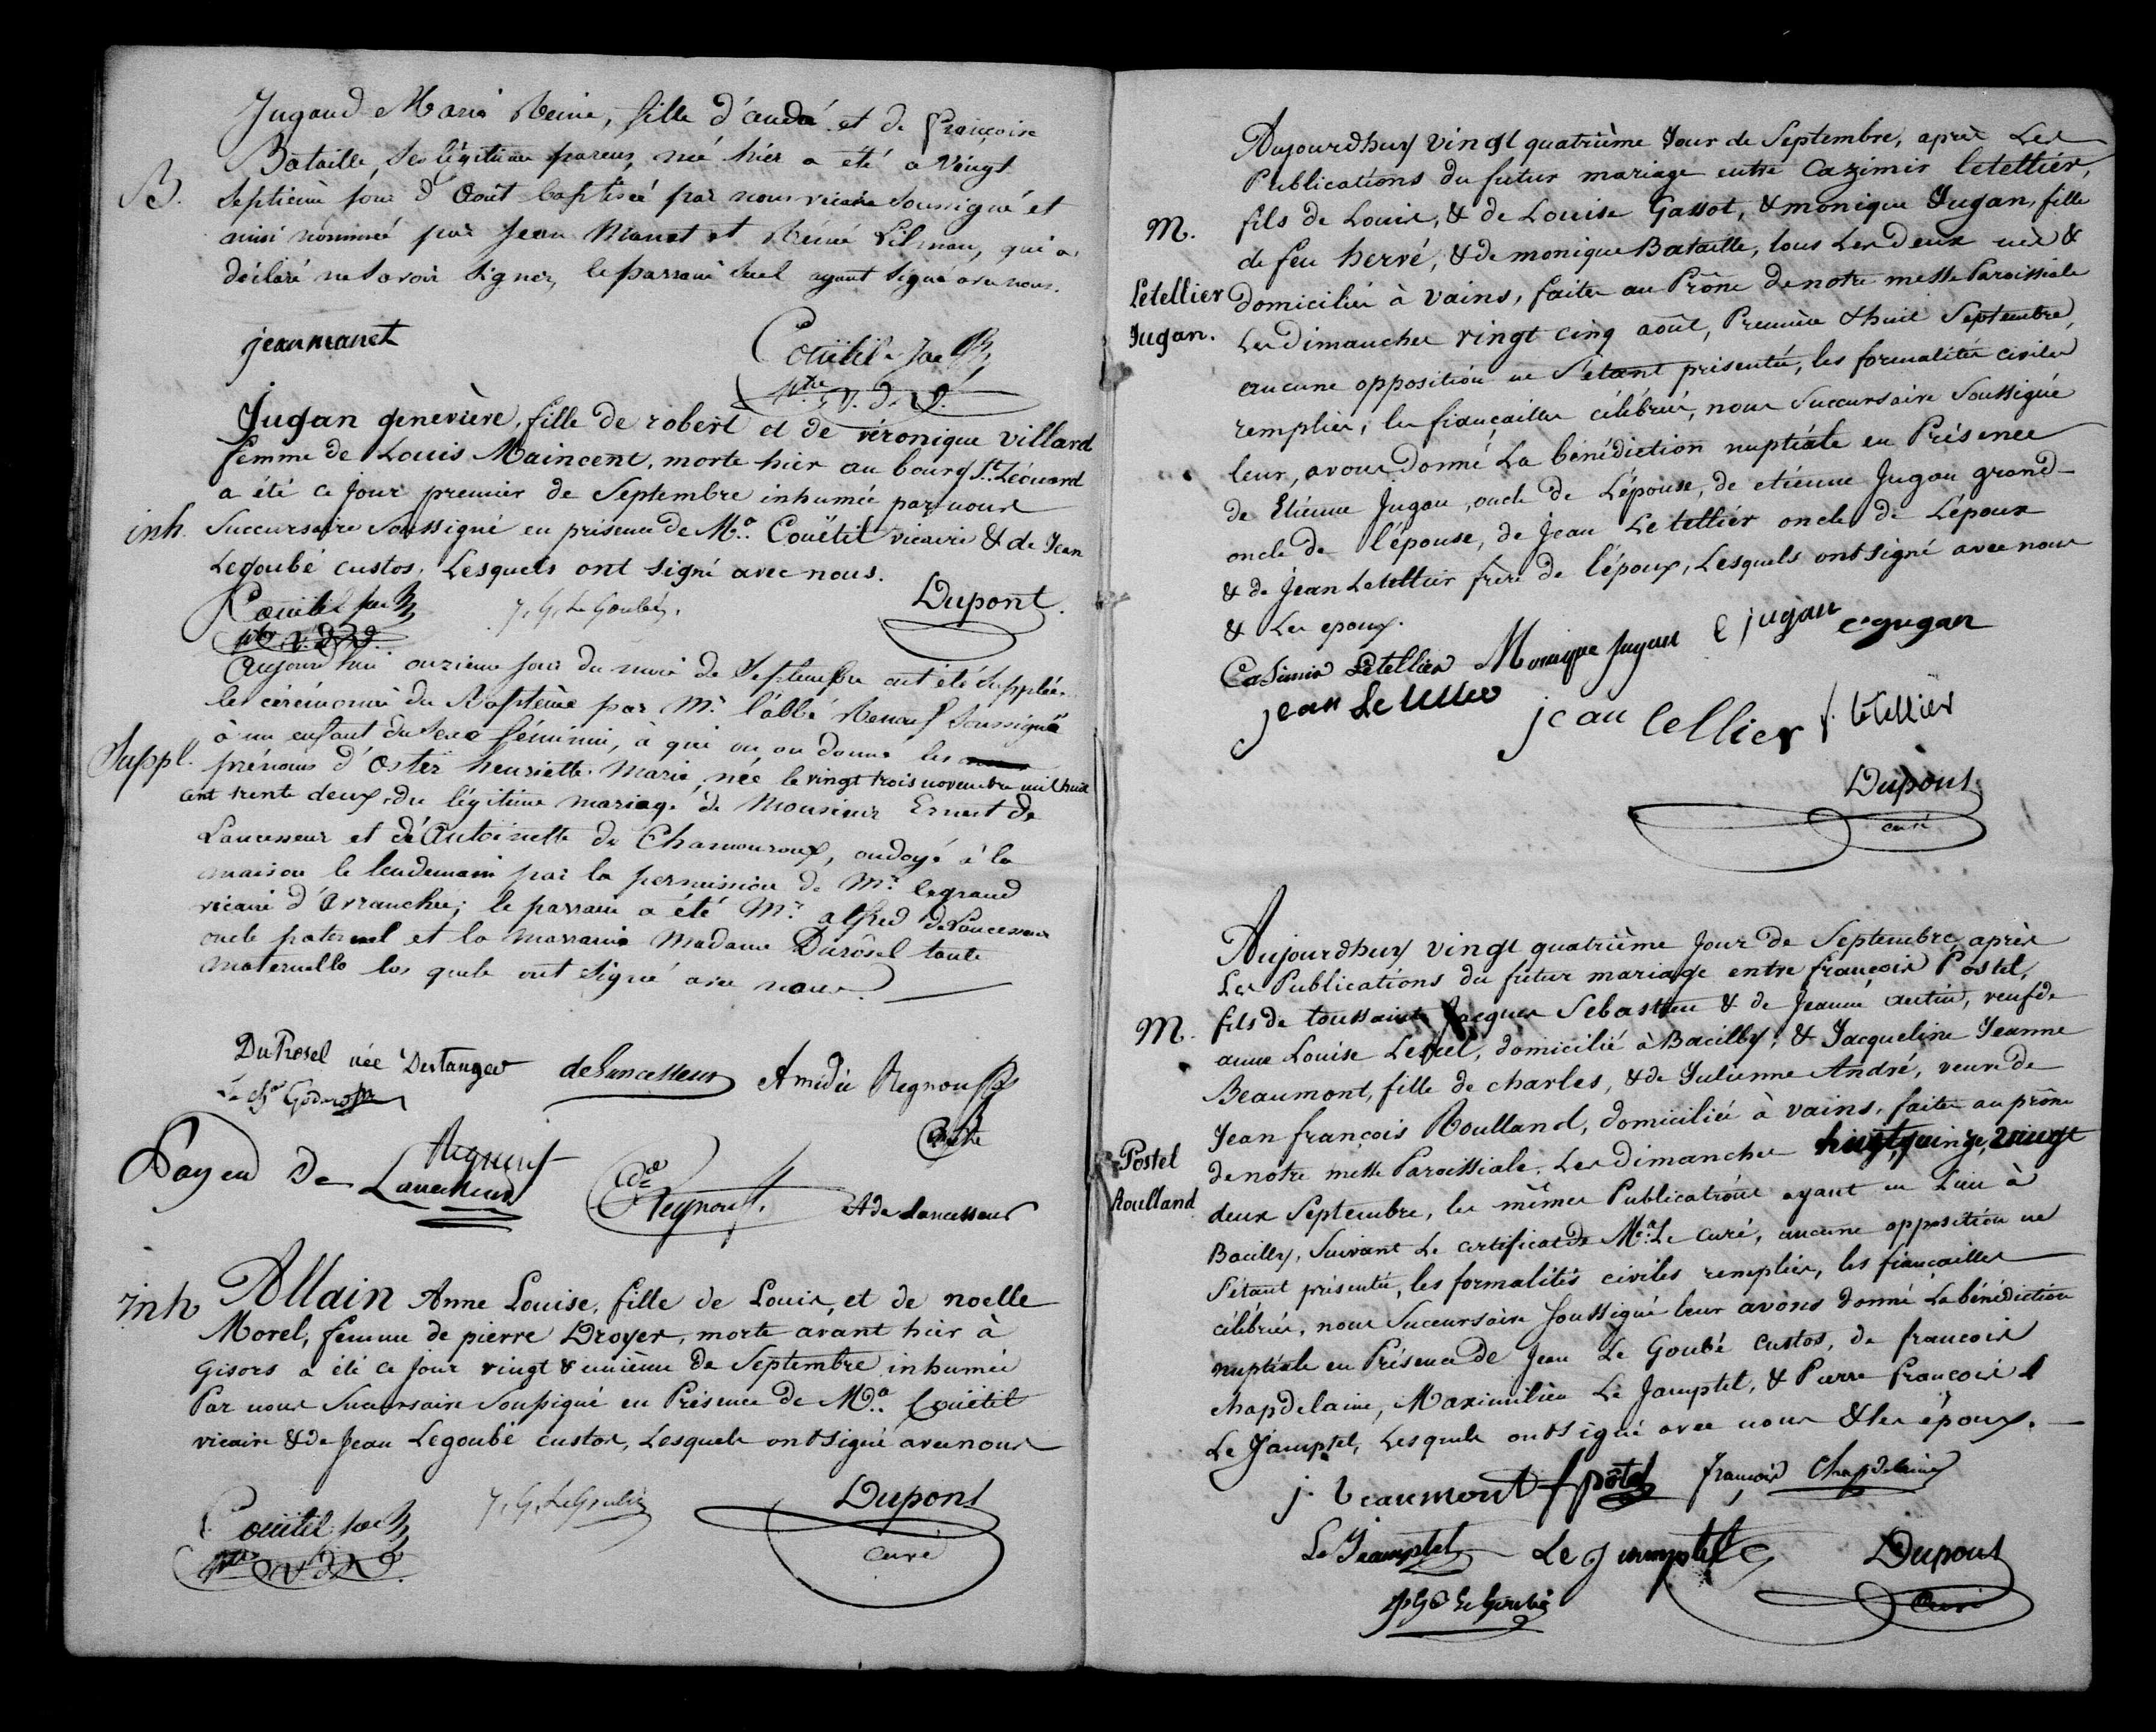 Jugand Marie Reine, fille d'andré et de françoise
Bataille, ses légitime parens, née hier a été a vingt
B.
Septieme jour d'Août baptisée par nous vicaire soussigné et
ainsi nommée par Jean Manet et Reine, qui a
déclaré ne savoir signer, le parrain seul ayant signé avec nous.
jean manet
Couëtil
ptre. v. d. V.
Jugan genevière, fille de robert et de véronique villard
femme de Louis Maincent, morte hier au bourg St. Léonard
a été ce jour premier de Septembre inhumée par nous
inh.
Succursaire Soussigné en présence de Mr. Couëtil vicaire & de Jean
Legoubé custos, Lesquels ont signé avec nous.
Couëtil
J. G. Le Goubé.
Dupont.
aujourd'hui onzieme jour du mois de Septembre ont été supplées
les cérémonies du Baptême par Mr. l'abbé Renouf soussigné
à un enfant du sexe féminin, à qui on, on donné les
Suppl.
prénoms d'Oster henriette Marie, née le vingt trois novembre mil huit
cent trente deux, du légitime mariage de Monsieur Ernest de
Lancesseur et d'Antoinette de Chamouroux, ondoyé à la
maison le lendemain par la permission de Mr. legrand
vicaire d'Avranches; le parrain a été Mr. alfred de Lancesseur
oncle paternel et la marraine Madame Durosel tante
maternelle les quels ont signé avec nous.
DuRosel née Destanger
deLancesseur
Amédée Regnouf
Le Chr Godefroy
Payen De Lancesseur
Regnouf
Regnouf.
A de Lancesseur
inh
Allain Anne Louise, fille de Louis, et de noelle
Morel, femme de pierre Droyer, morte avant hier à
Gisors a été ce jour vingt & unième de Septembre inhumée
Par nous Succursaire Soussigné en Présence de Mr. Couëtil
vicaire & de Jean Legoubé custos, Lesquels ont signé avec nous
Couëtil
J. G. LeGoubé
Dupont
curé
Aujourdhuy vingt quatrième Jour de Septembre, après Les
Publications du futur mariage entre Cazimir letellier,
M.
fils de Louis, & de Louise Gassot, & monique Jugan, fille
de feu hervé, & de monique Bataille, tous Les deux nés &
Letellier
Jugan.
domiciliés à vains, faites au Prône de notre messe Paroissiale
Les dimanches vingt cinq août, Premier & huit Septembre,
aucune opposition ne S'étant présentée, les formalités civiles
remplies, les fiançailles célébrées, nous Succursaire Soussigné
leur, avons donné La bénédiction nuptiale en Présence
de Etienne Jugan, oncle de L'épouse, de etienne Jugan grand-
oncle de l'épouse, de Jean Le tellier oncle de L'époux
& de Jean Letellier frère de l'époux, Lesquels ont signé avec nous
& Les epoux.
Casimir Letellier Monique jugan e jugan e jugan
jean Le tellier
jean tellier
f. letellier
Dupont
curé
Aujourdhuy vingt quatrième Jour de Septembre, après
Les Publications du futur mariage entre françois Postel,
M.
fils de toussaint Jacques Sebastien & de Jeanne autin, veuf de
anne Louise Lesnel, domicilié à Bacilly, & Jacqueline Jeanne
Beaumont, fille de charles, & de Julienne André, veuve de
Jean françois Roulland, domiciliée à vains, faites au prône
Postel
Roulland
de notre messe Paroissiale, Les dimanches huit, quinze, & vingt
deux Septembre, les mêmes Publications ayant eu Lieu à
Bacilly, Suivant Le certificat de Mr. Le curé, aucune opposition ne
S'étant présentée, les formalités civiles remplies, les fiançailles
célébrées, nous Succursaire Soussigné leur avons donné La bénédiction
nuptiale en Présence de Jean Le Goubé custos, de françois
chapdelaine, Maximilien Le Jamptel, & Pierre François
Le Jamptel, Lesquels ont signé avec nous & les époux.
j. beaumont f pôtel françois Chapdelaine
Le Jeamptel Le jamptel Dupont
J. G. Le Goubé
Curé